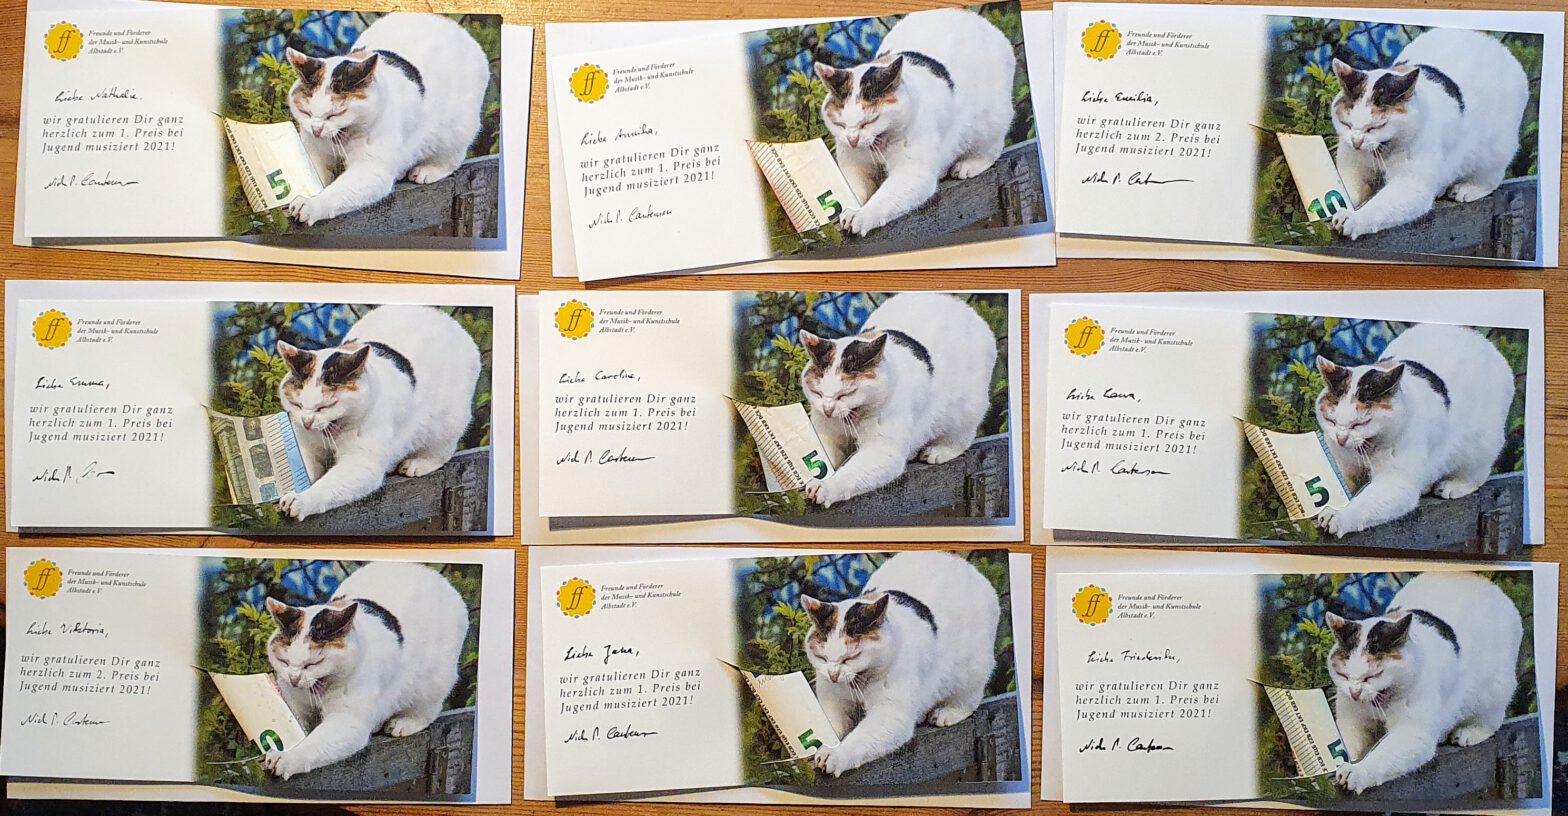 ff
Freunde und Förderer
der Musik- und Kunstschule
Albstadt e.V.
Liebe Nathalie,
wir gratulieren Dir ganz
herzlich zum 1. Preis bei
Jugend musiziert 2021!
5
ff
Freunde und Förderer
der Musik- und Kunstschule
Albstadt e.V.
Liebe Annika,
wir gratulieren Dir ganz
herzlich zum 1. Preis bei
Jugend musiziert 2021!
5
ff
Freunde und Förderer
der Musik- und Kunstschule
Albstadt e.V.
Liebe Emilia,
wir gratulieren Dir ganz
herzlich zum 2. Preis bei
Jugend musiziert 2021!
10
ff
Freunde und Förderer
der Musik- und Kunstschule
Albstadt e.V.
Liebe Emma,
wir gratulieren Dir ganz
herzlich zum 1. Preis bei
Jugend musiziert 2021!
ff
Freunde und Förderer
der Musik- und Kunstschule
Albstadt e.V.
Liebe Caroline,
wir gratulieren Dir ganz
herzlich zum 1. Preis bei
Jugend musiziert 2021!
5
ff
Freunde und Förderer
der Musik- und Kunstschule
Albstadt e.V.
Liebe Lana,
wir gratulieren Dir ganz
herzlich zum 1. Preis bei
Jugend musiziert 2021!
5
ff
Freunde und Förderer
der Musik- und Kunstschule
Albstadt e.V.
Liebe Viktoria,
wir gratulieren Dir ganz
herzlich zum 2. Preis bei
Jugend musiziert 2021!
0
ff
Freunde und Förderer
der Musik- und Kunstschule
Albstadt e.V.
Liebe Jana,
wir gratulieren Dir ganz
herzlich zum 1. Preis bei
Jugend musiziert 2021!
5
ff
Freunde und Förderer
der Musik- und Kunstschule
Albstadt e.V.
Liebe Friederike,
wir gratulieren Dir ganz
herzlich zum 1. Preis bei
Jugend musiziert 2021!
5